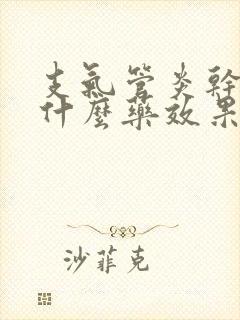 支氣管炎幹
什麼藥效果
沙菲克